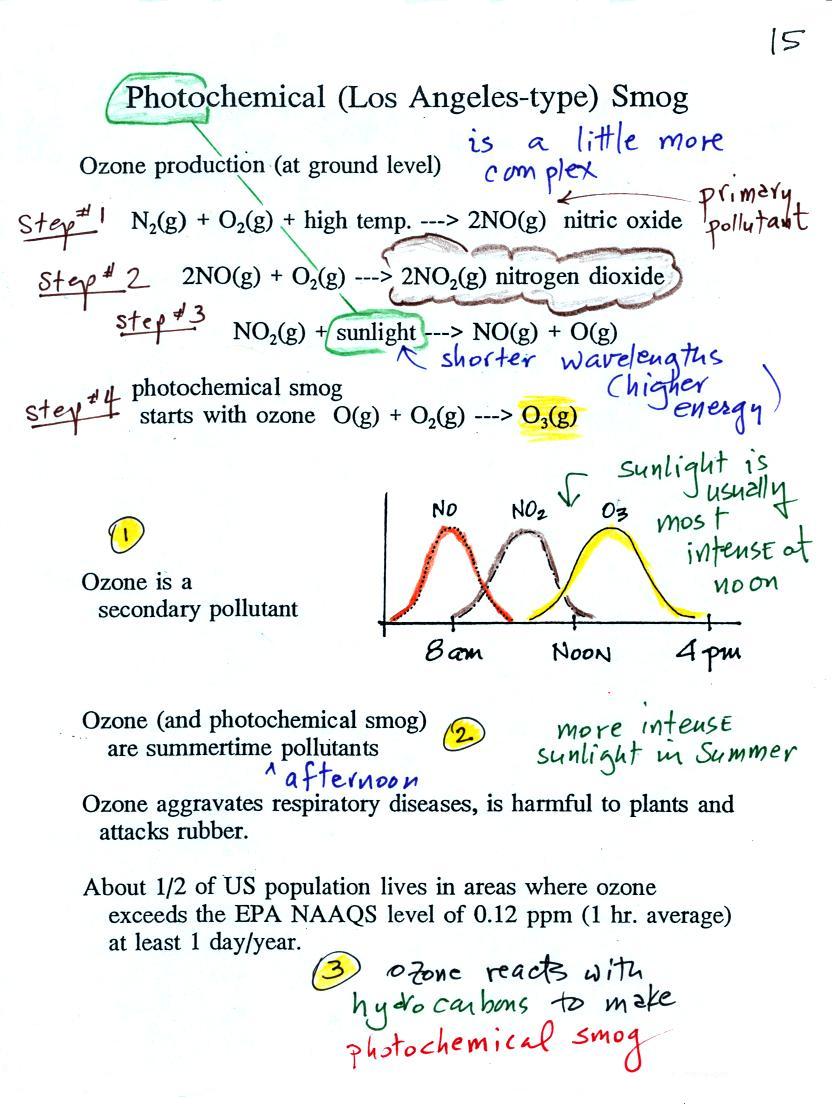 15
Photochemical (Los Angeles-type) Smog
is a little more
complex
Ozone production (at ground level)
primary
pollutant
Step #1 N₂(g) + O₂(g) + high temp. ---> 2NO(g) nitric oxide
Step #2 2NO(g) + O₂(g) ---> 2NO₂(g) nitrogen dioxide
Step #3 NO₂(g) + sunlight ---> NO(g) + O(g)
shorter wavelengths
(higher
energy)
Step #4 photochemical smog
starts with ozone O(g) + O₂(g) ---> O₃(g)
sunlight is
usually
most
intense at
noon
NO NO₂ O₃
1
Ozone is a
secondary pollutant
8am NOON 4pm
Ozone (and photochemical smog)
are summertime pollutants
2
^ afternoon
more intense
sunlight in Summer
Ozone aggravates respiratory diseases, is harmful to plants and
attacks rubber.
About 1/2 of US population lives in areas where ozone
exceeds the EPA NAAQS level of 0.12 ppm (1 hr. average)
at least 1 day/year.
3 ozone reacts with
hydrocarbons to make
photochemical smog